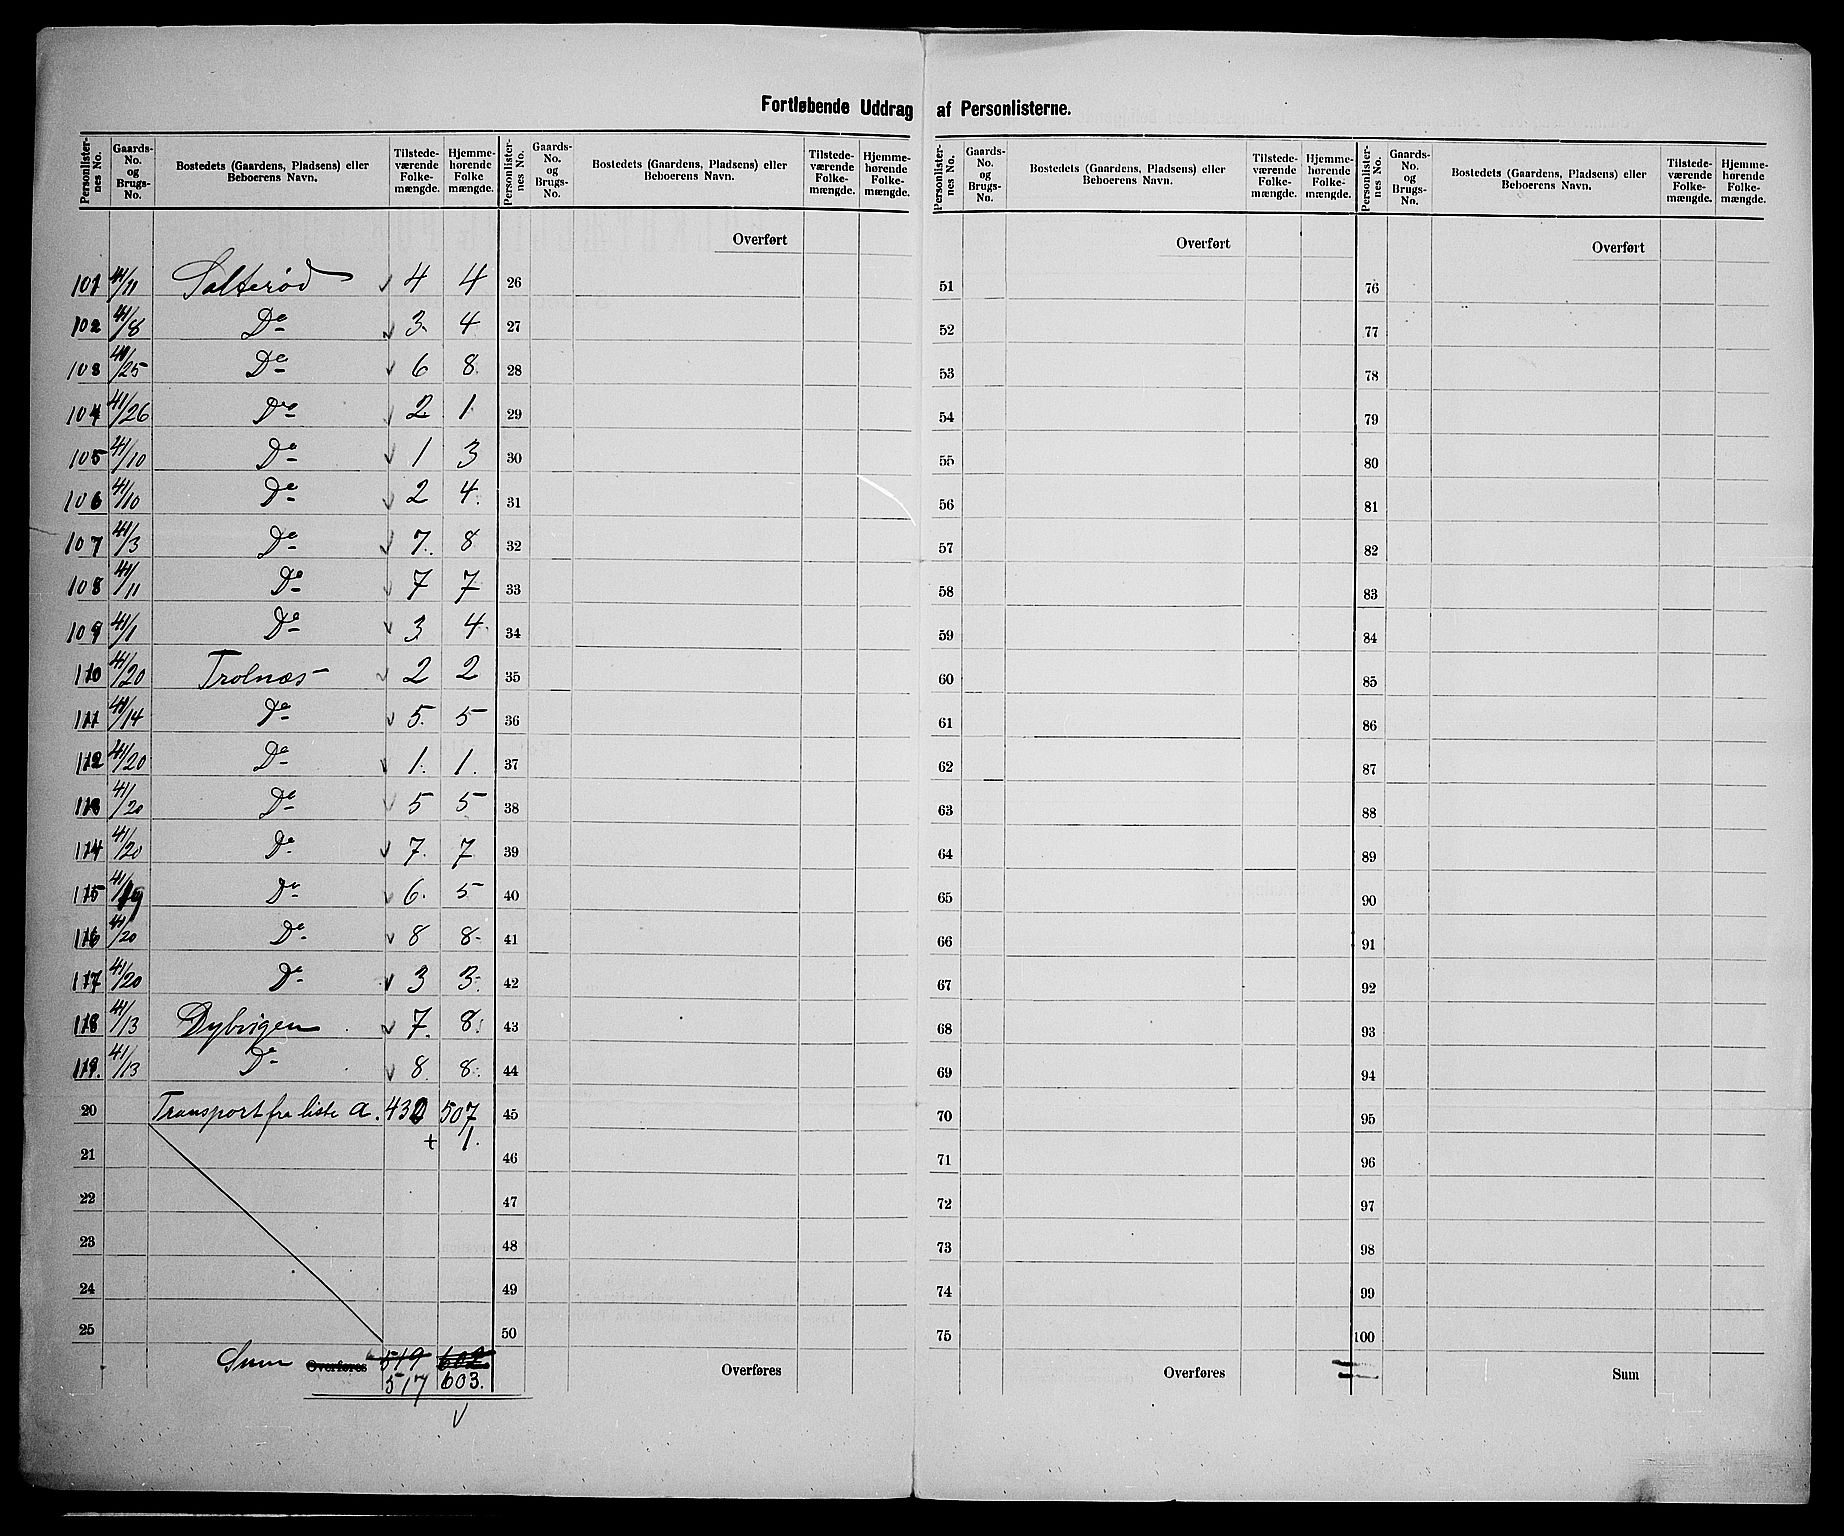 Fortløbende Uddrag af Personlisterne.
Personlister-nes No. | Gaards-No. og Brugs-No. | Bostedets (Gaardens, Pladsens) eller Beboerens Navn. | Tilstede-værende Folke-mængde. | Hjemme-hørende Folke mængde. | Personlister-nes No. | Gaards-No. og Brugs-No. | Bostedets (Gaardens, Pladsens) eller Beboerens Navn. | Tilstede-værende Folke-mængde. | Hjemme-hørende Folke-mængde. | Personlister-nes No. | Gaards-No. og Brugs-No. | Bostedets (Gaardens, Pladsens) eller Beboerens Navn. | Tilstede-værende Folke-mængde. | Hjemme-hørende Folke-mængde. | Personlister-nes No. | Gaards-No. og Brugs-No. | Bostedets (Gaardens, Pladsens) eller Beboerens Navn. | Tilstede-værende Folke-mængde. | Hjemme-hørende Folke-mængde.
Overført Overført Overført
101 41/11 Salterød √ 4 4 26 51 76
102 41/8 Do √ 3. 4 27 52 77
103 41/25 Do √ 6 8. 28 53 78
104 41/26 Do √ 2 1. 29 54 79
105 41/10 Do √ 1 3 30 55 80
106 41/10 Do √ 2 4. 31 56 81
107 41/3 Do √ 7. 8 32 57 82
108 41/11 Do √ 7 7 33 58 83
109 41/1 Do √ 3 4. 34 59 84
110 41/20 Trolnæs √ 2 2 35 60 85
111 41/14 Do √ 5. 5 36 61 86
112 41/20 Do √ 1. 1. 37 62 87
113 41/20 Do √ 5 5 38 63 88
114 41/20 Do √ 7. 7 39 64 89
115 41/19 Do √ 6. 5 40 65 90
116 41/20 Do √ 8 8 41 66 91
117 41/20 Do √ 3 3. 42 67 92
118 41/13 Dybvigen √ 7. 8. 43 68 93
119. 41/13 Do √ 8. 8. 44 69 94
20 Transport fra liste a. 430 507 45 70 95
+ 1.
21 46 71 96
22 47 72 97
23 48 73 98
24 49 74 99
25 50 75 100
Sum Overføres 519 602 Overføres Overføres Sum
517 603.
√